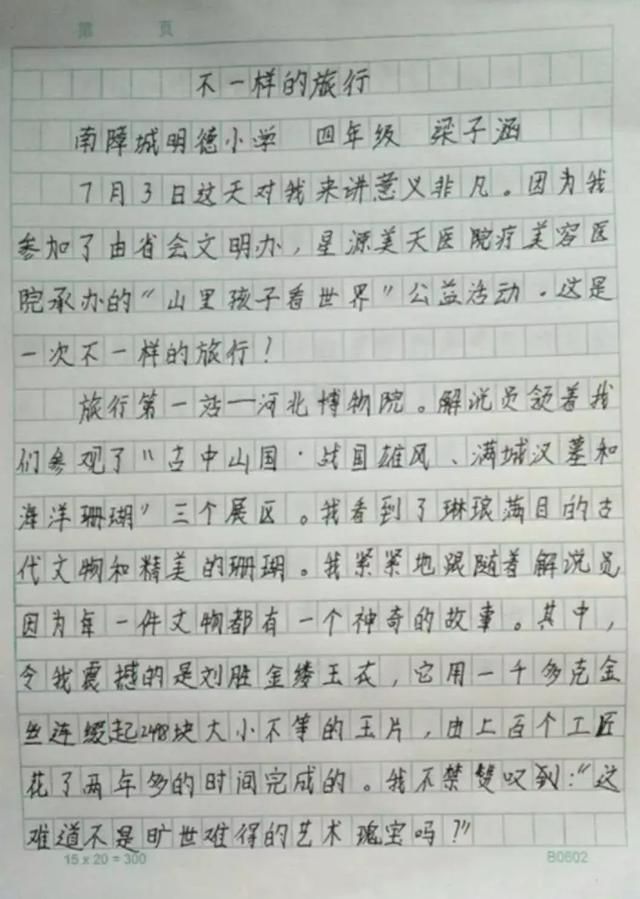 第 页
不一样的旅行
南障城明德小学 四年级 梁子涵
7月3日这天对我来讲意义非凡。因为我
参加了由省会文明办，星源美天医院疗美容医
院承办的“山里孩子看世界”公益活动。这是
一次不一样的旅行！
旅行第一站一河北博物院。解说员领着我
们参观了“古中山国·战国雄风、满城汉墓和
海洋珊瑚”三个展区。我看到了琳琅满目的古
代文物和精美的珊瑚。我紧紧地跟随着解说员
因为每一件文物都有一个神奇的故事。其中，
令我震撼的是刘胜金缕玉衣，它用一千多克金
丝连缀起2498块大小不等的玉片，由上百个工匠
花了两年多的时间完成的。我不禁赞叹到：“这
难道不是旷世难得的艺术瑰宝吗？”
15 x 20 = 300 B0602